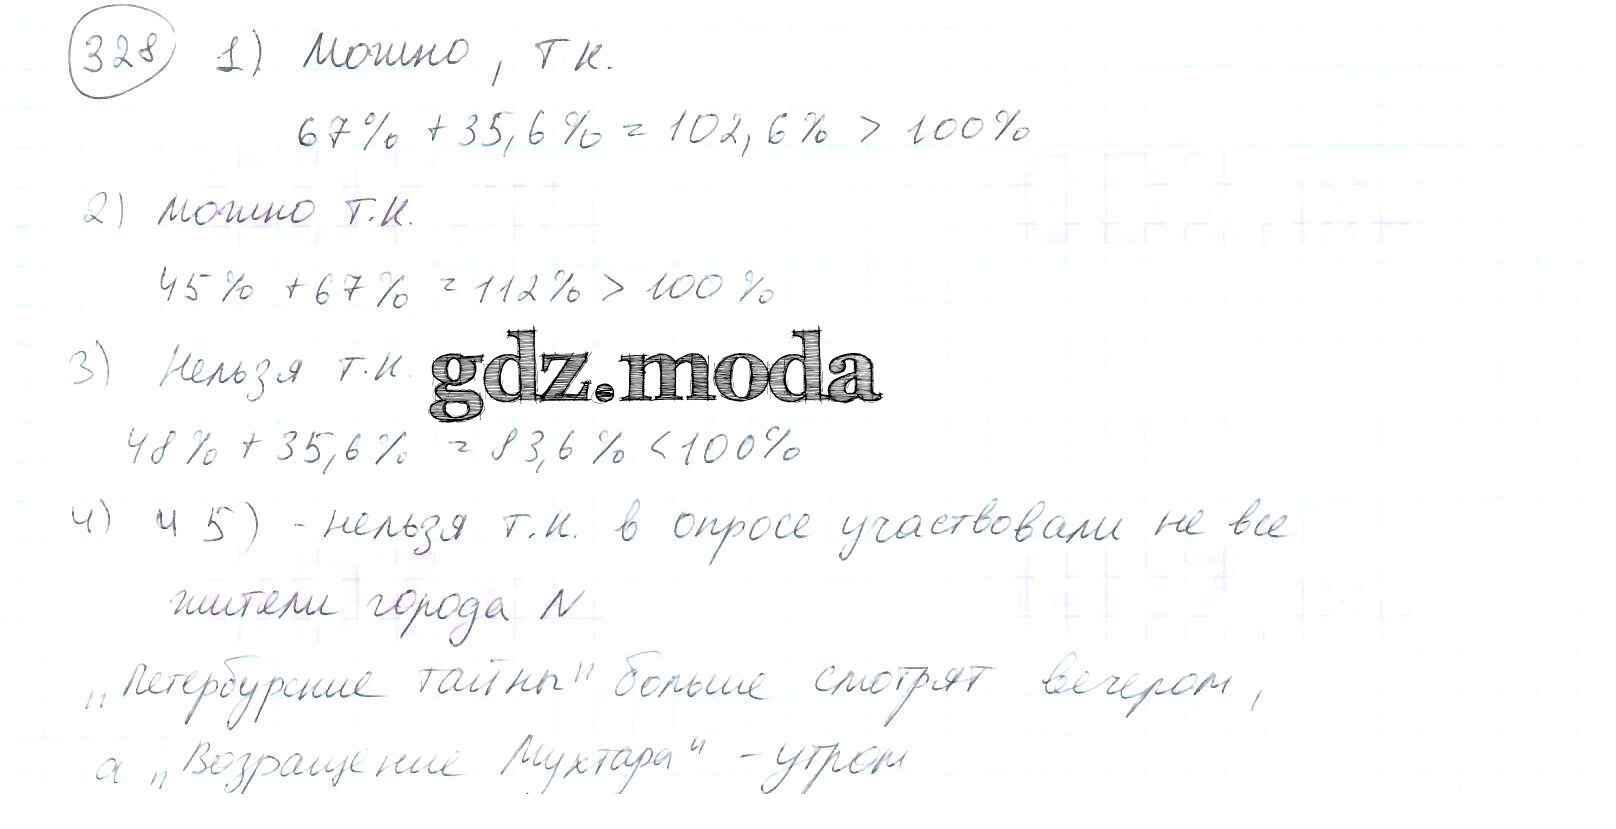 328 1) Можно, т к.
67% + 35,6% = 102,6% > 100%
2) можно т.к.
45% + 67% = 112% > 100%
3) Нельзя т.к. gdz.moda
48% + 35,6% = 83,6% < 100%
4) и 5) - нельзя т.к. в опросе участвовали не все
жители города N
„Петербургские тайны" больше смотрят вечером,
а „Возращение Мухтара" - утром